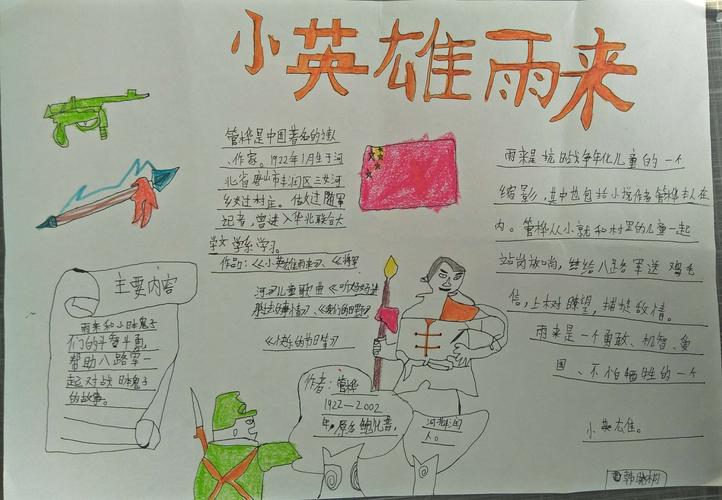 小英雄雨来
管桦是中国著名的诗人
、作家。1922年1月生于河
北省唐山市丰润区三女河
乡过村庄。做过随军
记者,曾进入华北联合大
学文学系学习。
作品:《小英雄雨来》、《将军
河》儿童歌曲《听妈妈讲
那过去的事情》《我们的田野》
《快乐的节日等》
雨来是抗日战争年代儿童的一个
缩影,其中也包括小说作者管桦本人在
内。管桦从小就和村里的儿童一起
站岗放哨,给八路军送鸡毛
信,上树瞭望,捕捉敌情。
雨来是一个勇敢、机智、爱
国、不怕牺牲的一个
小英雄。
主要内容
雨来和小日本鬼子
们的斗智斗勇,
帮助八路军一
起对战日本鬼子
的故事。
作者:管桦
1922—2002
年,原名鲍化普,
河北丰润
人。